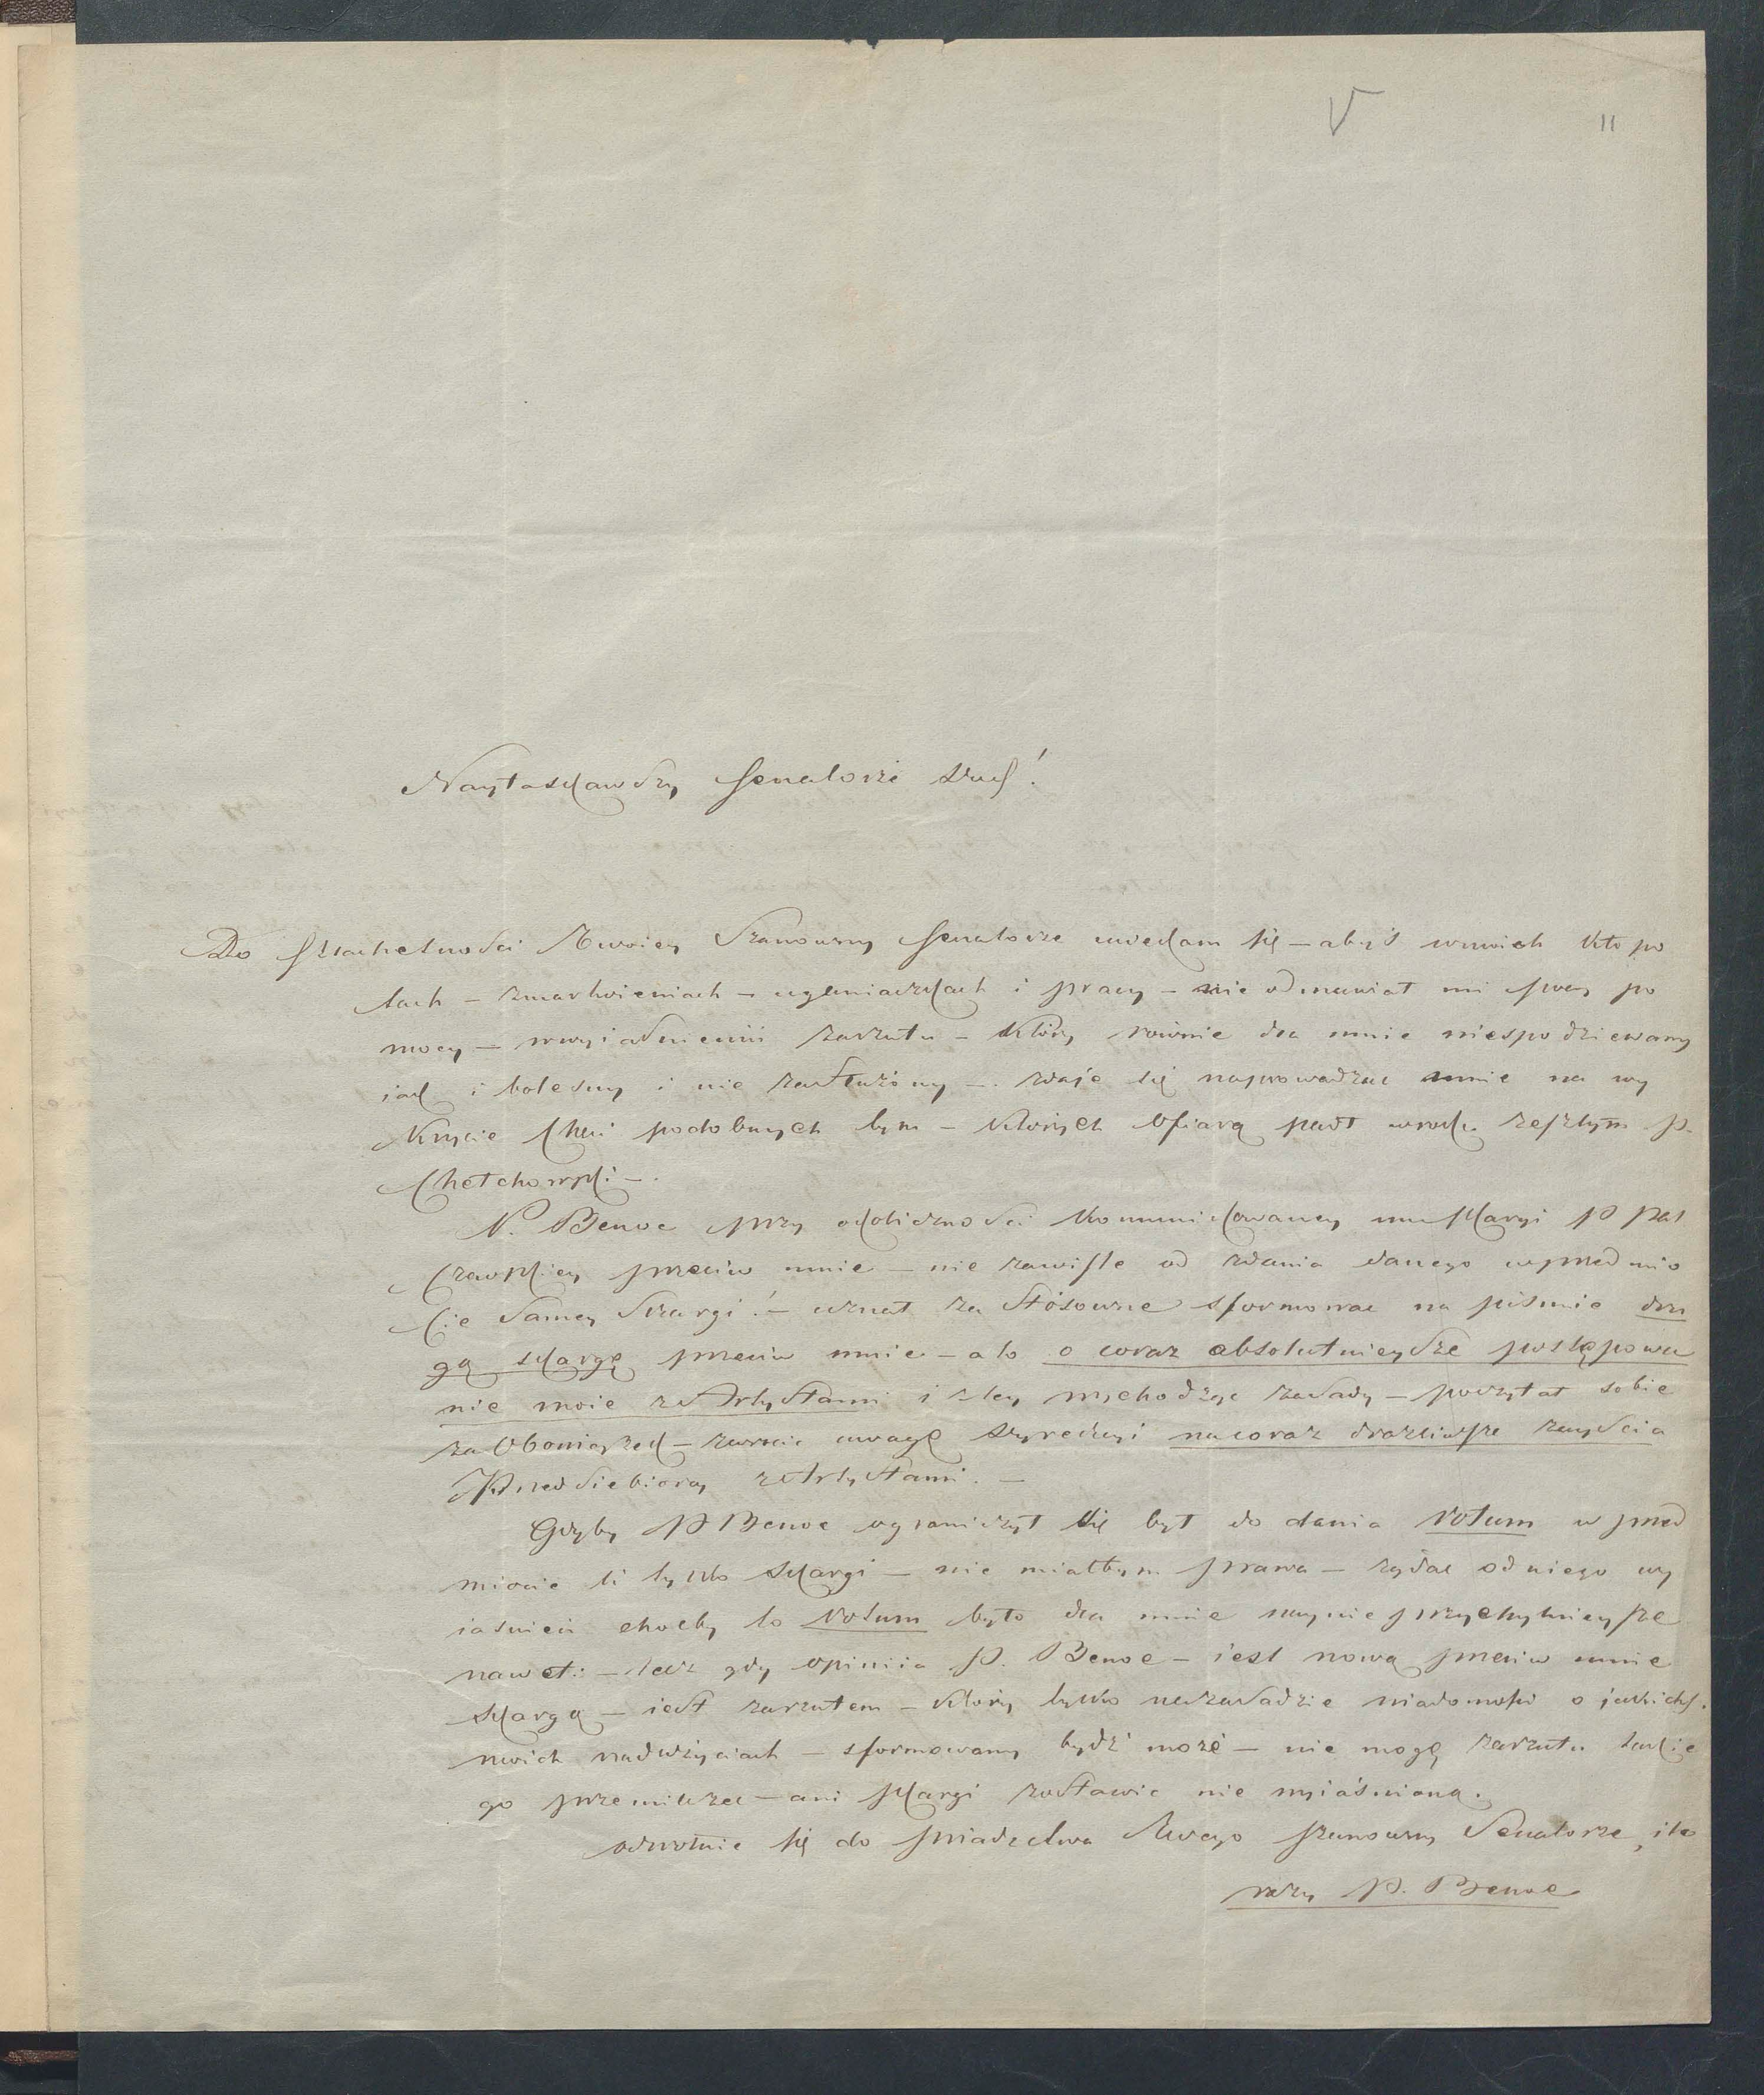 V
11
Nayłaskawszy Senatorze
Do Szlachetności Twoiey Szanowny Senatorze uciekam się – abyś w moich kłopo
tach – zmartwieniach – uganiaczkach i pracy – nie odmawiał mi swey po
mocy – w wyiaśnieniu zarzutu – który równie dla mnie niespodziewany
iak i bolesny i nie zasłużony – zdaje się naprowadzać mnie na wy
krycie chęci podobnych tym – których ofiarą padł w roku zeszłym P.
Chełchowski –
P. Benoe przy okoliczności kommunikowaney mu skargi P
przeciw mnie – nie zawisle od zdania danego w przedmio
cie samey skargi! – uznał za stósowne sformować na piśmie dru
gą skargę przeciw mnie – a to o coraz absolutnieysze postępowa
nie moie z Artystami i z tey wychodząc zasady – poczytał sobie
za Obowiązek – zwrócić uwagę Dyrekcyi na coraz drażliwsze zayścia
Przedsiębiorcy z Artystami. –
Gdyby P Benoe ograniczył się był do dania Votum w przed
miocie li tylko skargi – nie miałbym prawa – żądać od niego wy
iaśnień choćby to Votum było dla mnie naynieprzychylnieysze
nawet: – lecz gdy opiniia P. Benoe – iest nową przeciw mnie
skargą – iest zarzutem – który tylko na zasadzie wiadomości o jakichś
moich nadużyciach – sformowany bydź może – nie mogę zarzutu takie
go przemilczeć – ani skargi zostawić nie wyiaśnioną.
odwołuię się do świadectwa Twego szanowny Senatorze, ile
razy P. Benoe